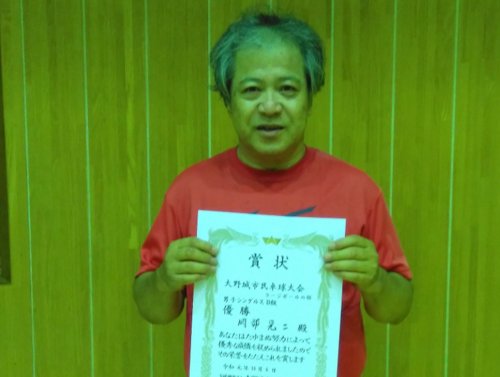 賞状
大野城市民卓球大会
ラージボールの部
男子シングルスB級
優勝
岡部 殿
あなたはたゆまぬ努力によって
優秀な成績を収められましたので
その栄誉をたたえこれを賞します
令和元年